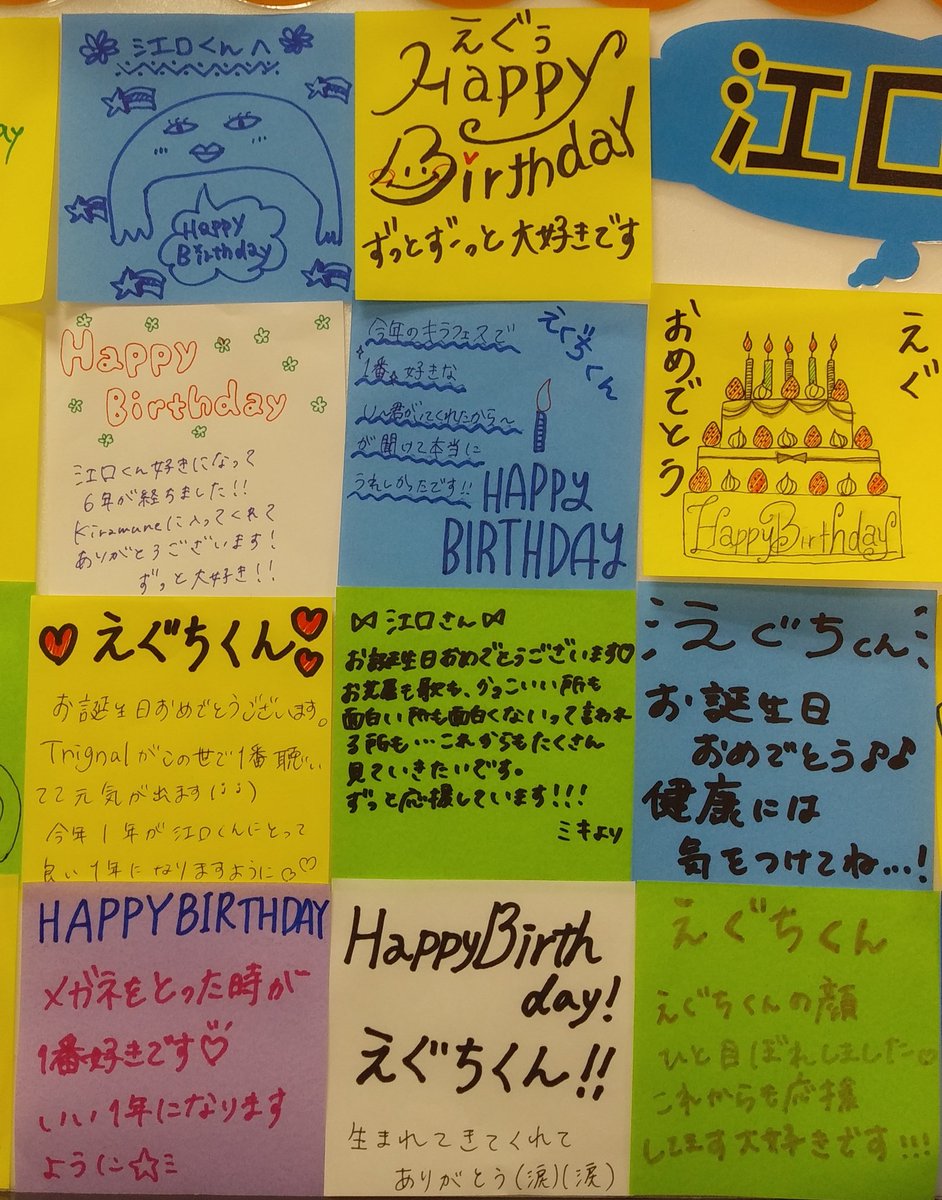 江口くんへ
Happy
Birthday
えぐぅ
Happy
Birthday
ずっとずーっと大好きです
江口
ay
Happy
Birthday
江口くん好きになって
6年が経ちました!!
Kiramuneに入ってくれて
ありがとうございます!
ずっと大好き!!
えぐちくん
今年のキラフェスで
1番好きな
君がいてくれたから〜
が聞けて本当に
うれしかったです!!
HAPPY
BIRTHDAY
えぐ
おめでとう
HappyBirthday
えぐちくん
お誕生日おめでとうございます。
Trignalがこの世で1番聴い
てて元気が出ます
今年1年が江口くんにとって
良い1年になりますように♡♡
江口さん
お誕生日おめでとうございます♡
お芝居も歌も、かっこいい所も
面白い所も面白くないって言われ
る所も…これからもたくさん
見ていきたいです。
ずっと応援しています!!!
ミキより
えぐちくん
お誕生日
おめでとう♪♪
健康には
気をつけてね…!
HAPPYBIRTHDAY
メガネをとった時が
1番好きです♡
いい1年になります
ように☆ミ
HappyBirth
day!
えぐちくん!!
生まれてきてくれて
ありがとう(涙)(涙)
えぐちくん
えぐちくんの顔
ひと目ぼれしました♡
これからも応援
してます大好きです!!!